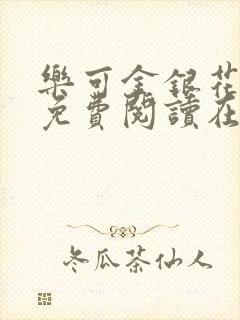 樂可金銀花
免費閱讀在
冬瓜茶仙人